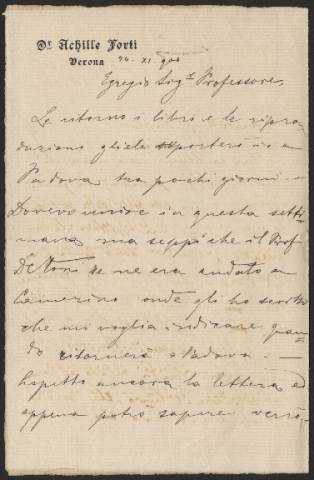 Dr. Achille Forti
Verona 26. XI 900
Egregio Sigr Professore,
Le ritorno i libri e le ripro
duzioni gliele porterò io a
Padova tra pochi giorni —
Dovevo venire in questa setti
mana ma seppi che il Prof
De Toni se ne era andato a
Camerino onde gli ho scritto
che mi voglia indicare quan
do ritornerà a Padova —
Aspetto ancora la lettera ed
appena potrò sapere verrò